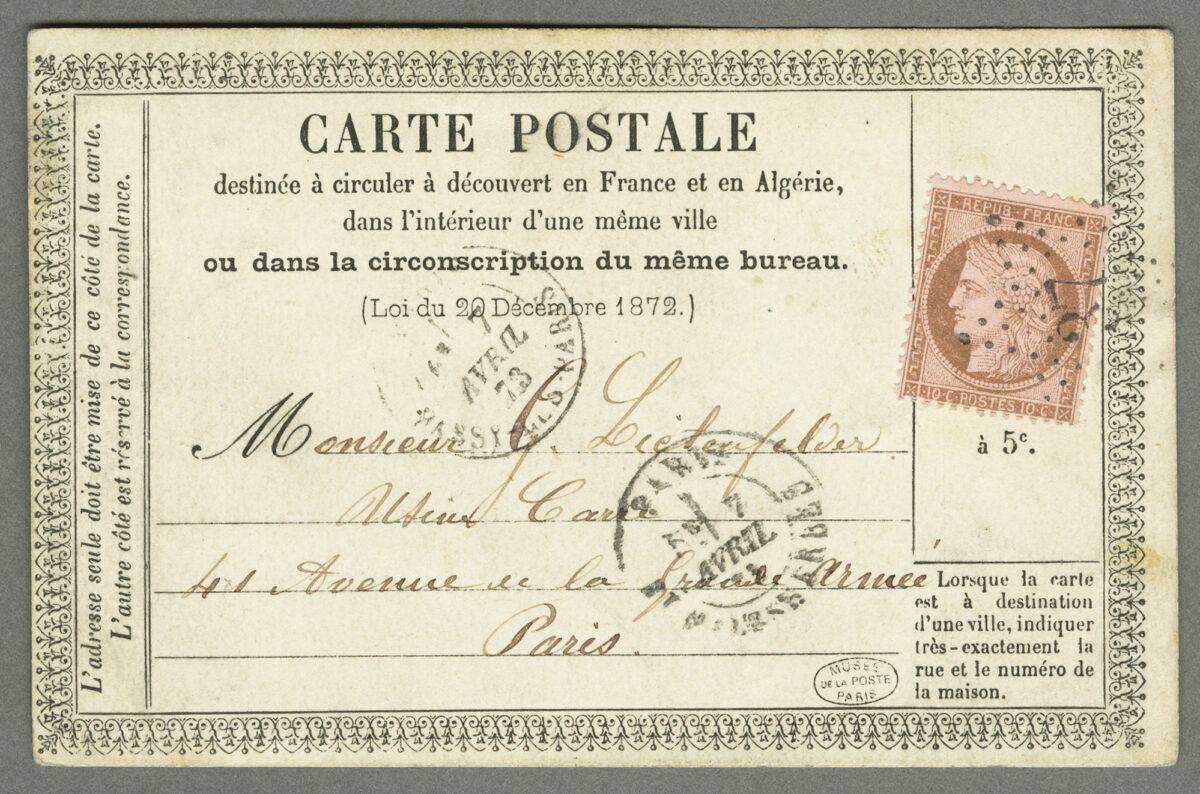 CARTE POSTALE
destinée à circuler à découvert en France et en Algérie,
dans l'intérieur d'une même ville
ou dans la circonscription du même bureau.
(Loi du 20 Décembre 1872.)
L'adresse seule doit être mise de ce côté de la carte.
L'autre côté est réservé à la correspondance.
REPUB. FRANC
10 C. POSTES 10 C.
à 5c.
7
AVRIL
73
PASSY-LES-PARIS
Monsieur
Usine
41 Avenue de la Grande Armée
Paris.
PARIS
7
AVRIL
Lorsque la carte
est à destination
d'une ville, indiquer
très-exactement la
rue et le numéro de
la maison.
MUSÉE
DE LA POSTE
PARIS